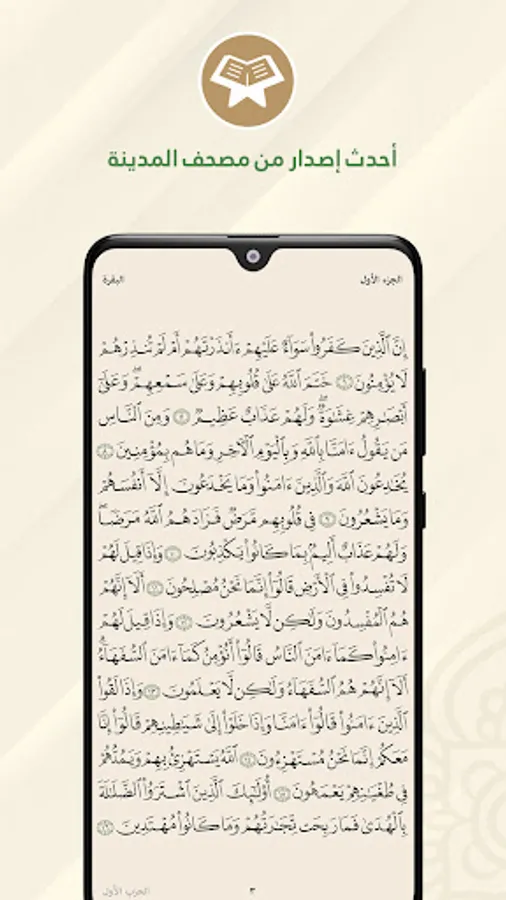 أحدث إصدار من مصحف المدينة
الجزء الأول
البقرة
إِنَّ ٱلَّذِينَ كَفَرُواْ سَوَآءٌ عَلَيْهِمْ ءَأَنذَرْتَهُمْ أَمْ لَمْ تُنذِرْهُمْ
لَا يُؤْمِنُونَ ٦ خَتَمَ ٱللَّهُ عَلَىٰ قُلُوبِهِمْ وَعَلَىٰ سَمْعِهِمْۖ وَعَلَىٰٓ
أَبْصَٰرِهِمْ غِشَٰوَةٌۖ وَلَهُمْ عَذَابٌ عَظِيمٌ ٧ وَمِنَ ٱلنَّاسِ
مَن يَقُولُ ءَامَنَّا بِٱللَّهِ وَبِٱلْيَوْمِ ٱلْأٓخِرِ وَمَا هُم بِمُؤْمِنِينَ ٨
يُخَٰدِعُونَ ٱللَّهَ وَٱلَّذِينَ ءَامَنُواْ وَمَا يَخْدَعُونَ إِلَّآ أَنفُسَهُمْ
وَمَا يَشْعُرُونَ ٩ فِي قُلُوبِهِم مَّرَضٌ فَزَادَهُمُ ٱللَّهُ مَرَضًاۖ
وَلَهُمْ عَذَابٌ أَلِيمُۢ بِمَا كَانُواْ يَكْذِبُونَ ١٠ وَإِذَا قِيلَ لَهُمْ
لَا تُفْسِدُواْ فِي ٱلْأَرْضِ قَالُوٓاْ إِنَّمَا نَحْنُ مُصْلِحُونَ ١١ أَلَآ إِنَّهُمْ
هُمُ ٱلْمُفْسِدُونَ وَلَٰكِن لَّا يَشْعُرُونَ ١٢ وَإِذَا قِيلَ لَهُمْ
ءَامِنُواْ كَمَآ ءَامَنَ ٱلنَّاسُ قَالُوٓاْ أَنُؤْمِنُ كَمَآ ءَامَنَ ٱلسُّفَهَآءُۗ
أَلَآ إِنَّهُمْ هُمُ ٱلسُّفَهَآءُ وَلَٰكِن لَّا يَعْلَمُونَ ١٣ وَإِذَا لَقُواْ
ٱلَّذِينَ ءَامَنُواْ قَالُوٓاْ ءَامَنَّا وَإِذَا خَلَوْاْ إِلَىٰ شَيَٰطِينِهِمْ قَالُوٓاْ إِنَّا
مَعَكُمْ إِنَّمَا نَحْنُ مُسْتَهْزِءُونَ ١٤ ٱللَّهُ يَسْتَهْزِئُ بِهِمْ وَيَمُدُّهُمْ
فِي طُغْيَٰنِهِمْ يَعْمَهُونَ ١٥ أُوْلَٰٓئِكَ ٱلَّذِينَ ٱشْتَرَوُاْ ٱلضَّلَٰلَةَ
بِٱلْهُدَىٰ فَمَا رَبِحَت تِّجَٰرَتُهُمْ وَمَا كَانُواْ مُهْتَدِينَ ١٦
٣
الحزب الأول